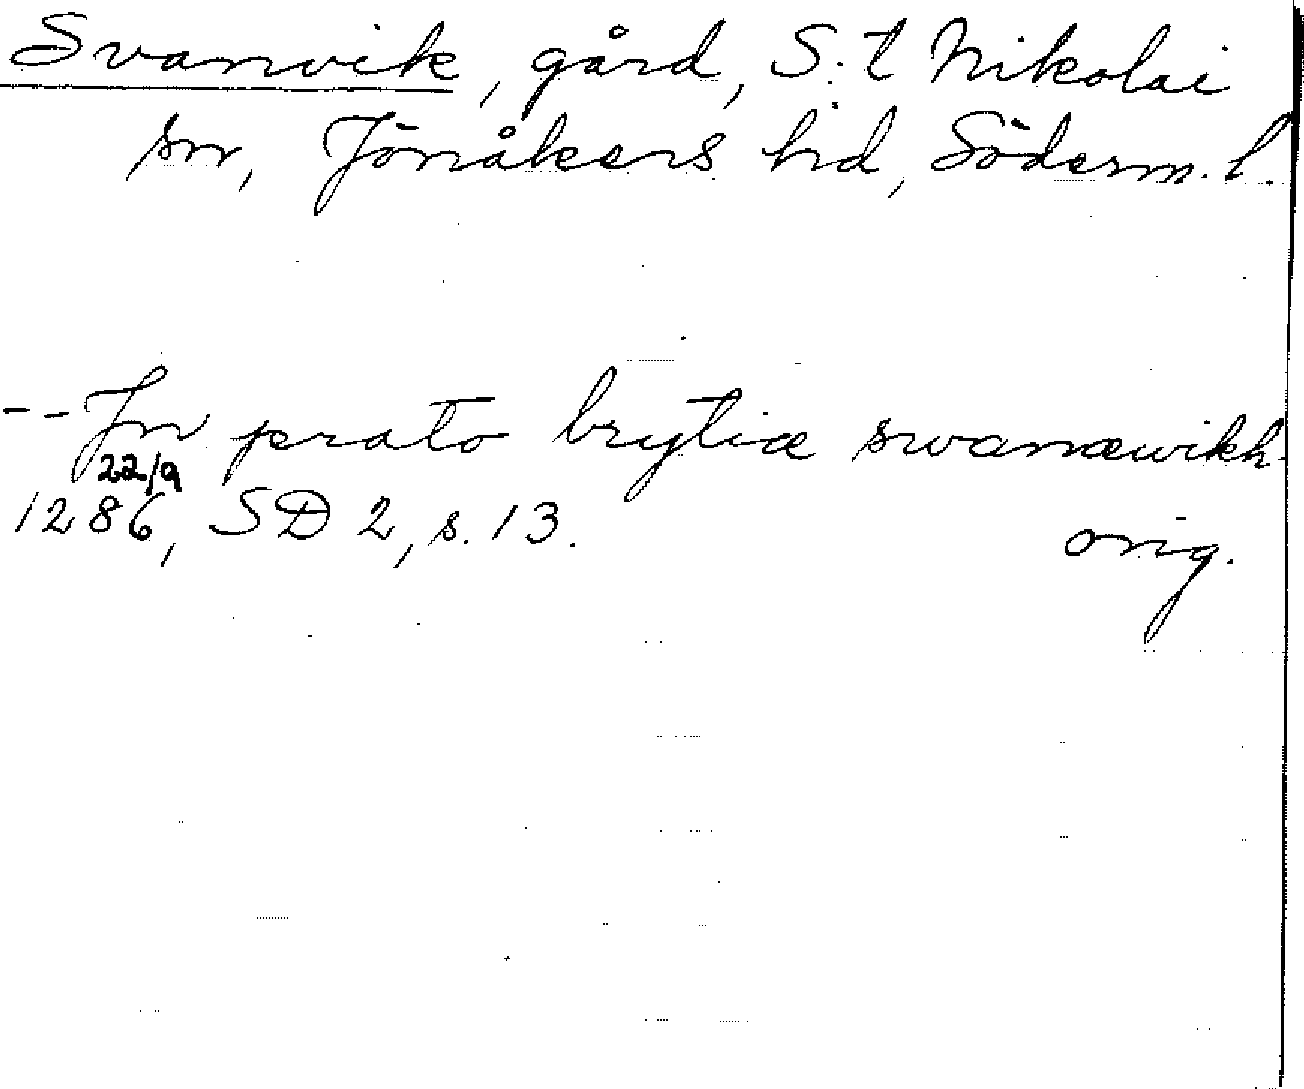 Svanvik, gård, S:t Nikolai
sn, Jönåkers hd, Söderm. l.
-- Jn prato brytiæ swanæwikh
22/9
1286, SD 2, s. 13.
orig.